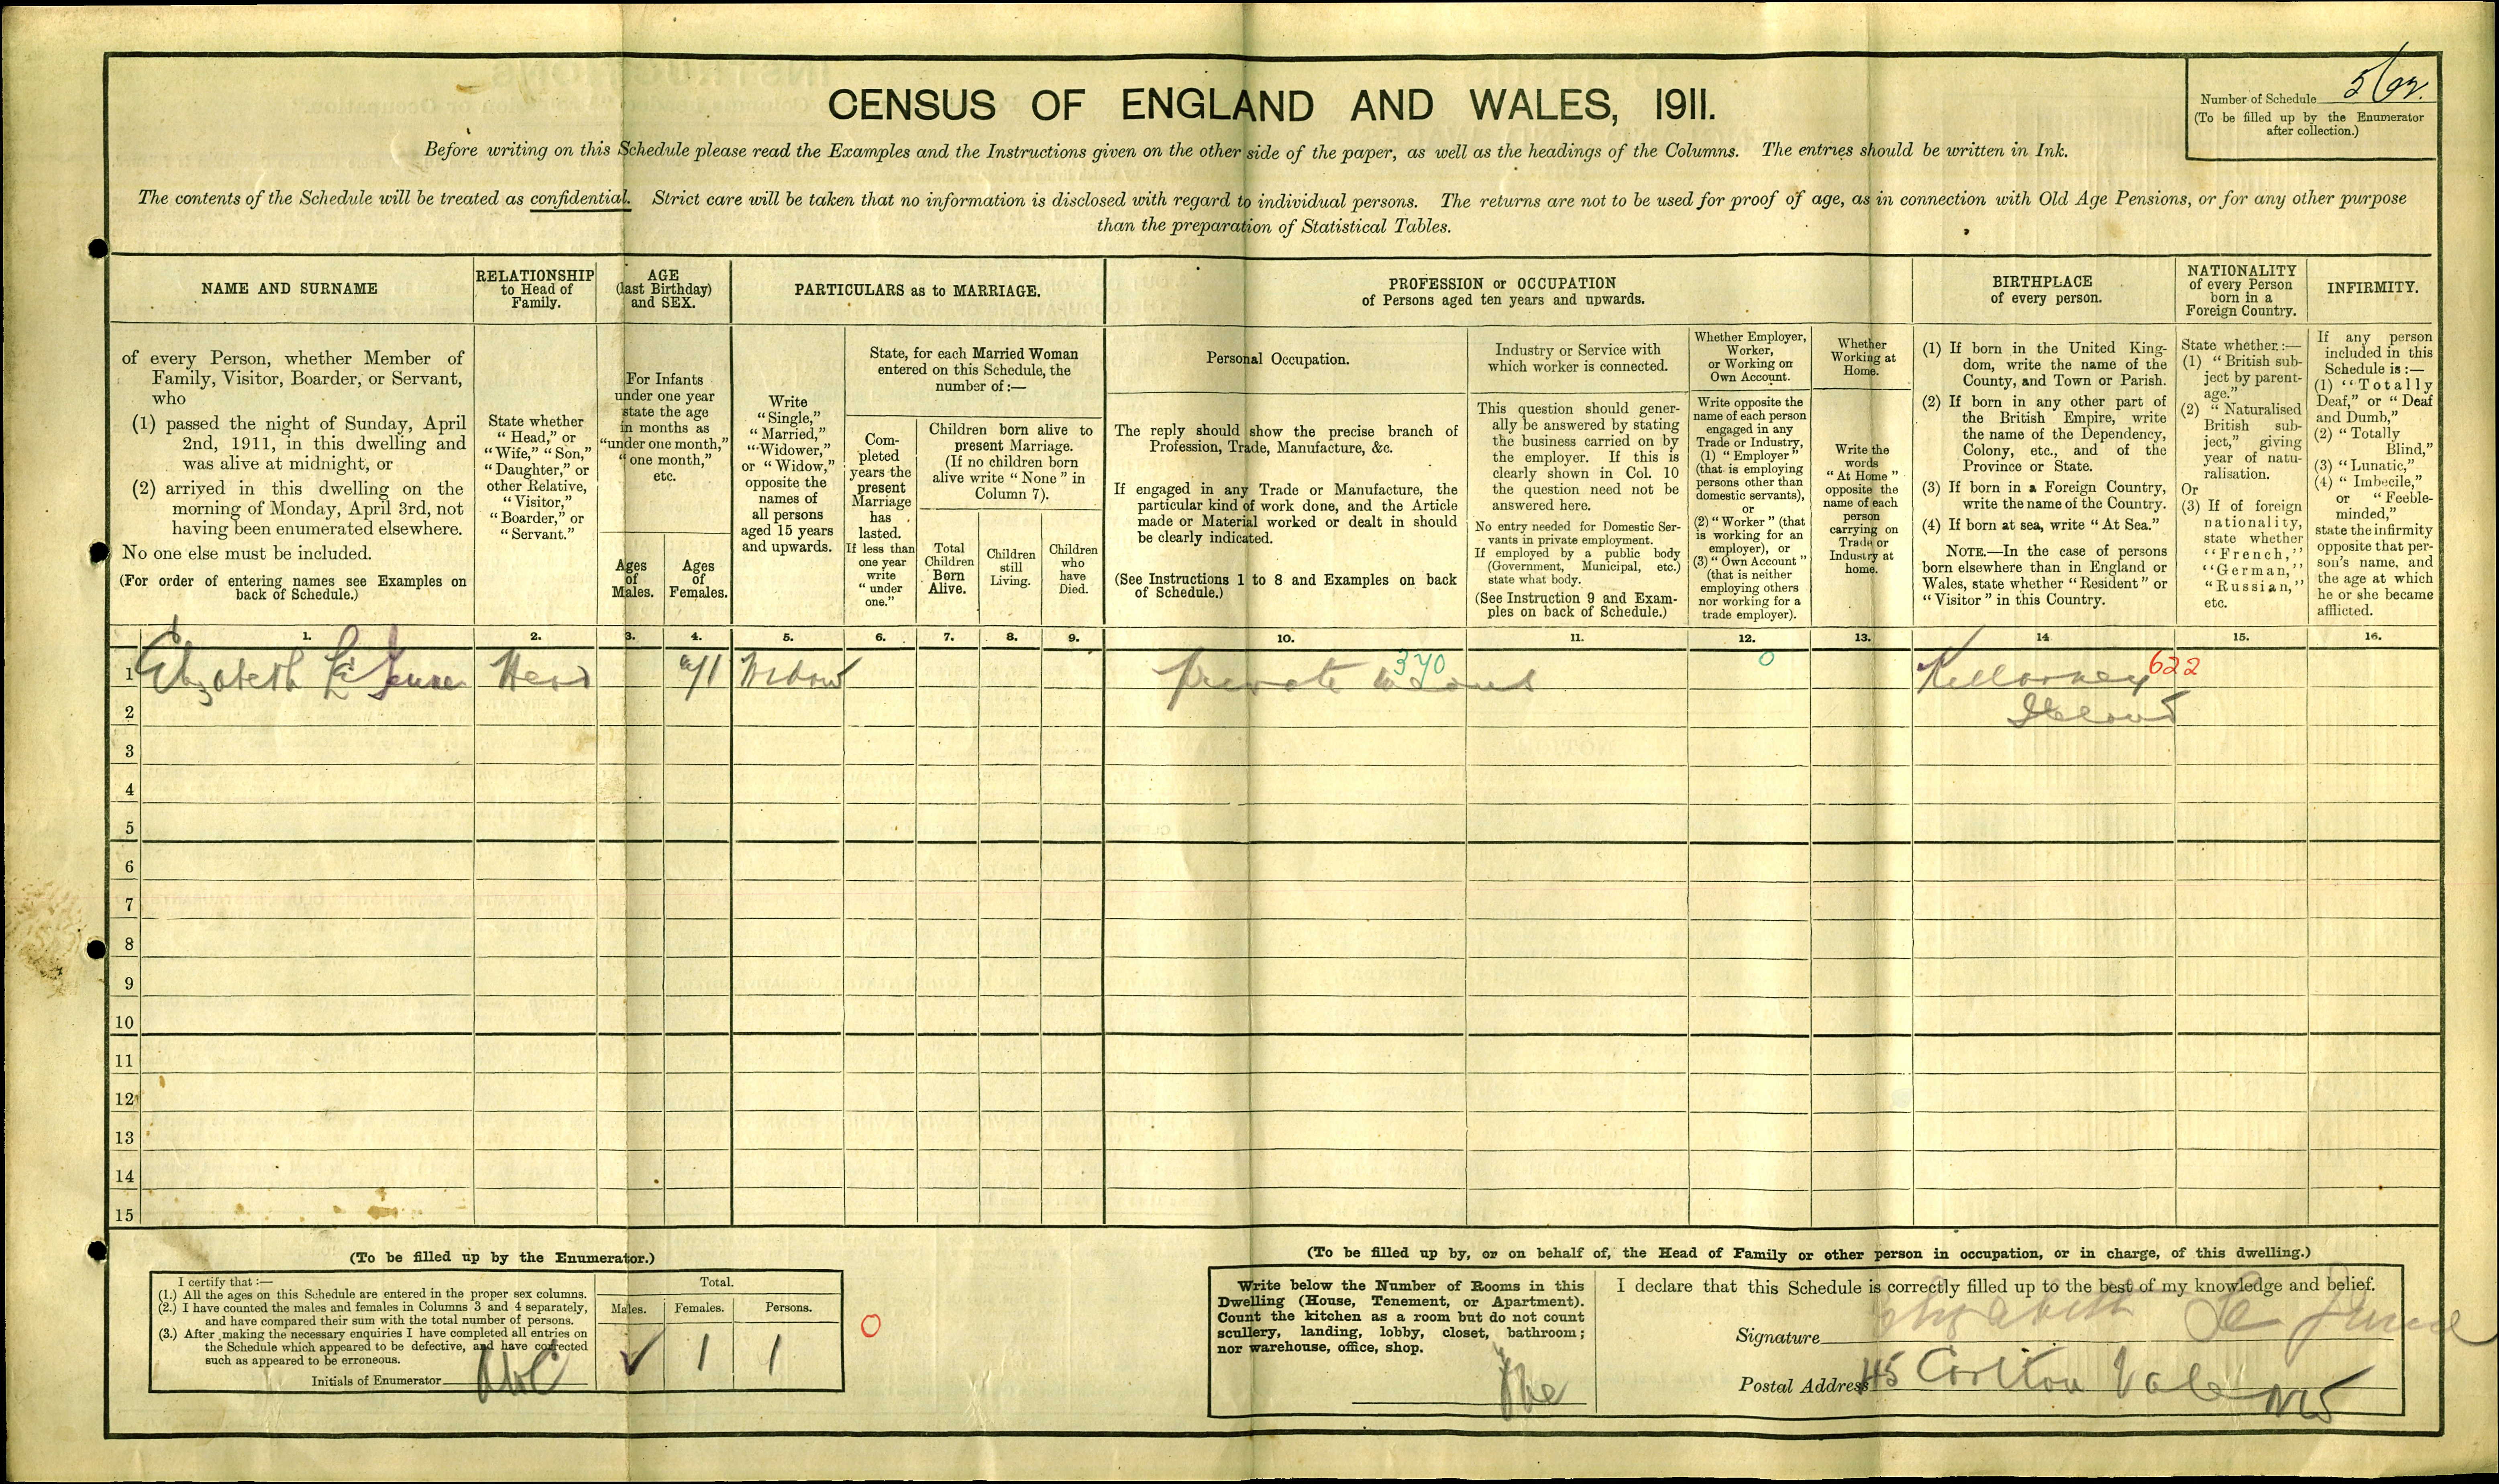 CENSUS OF ENGLAND AND WALES, 1911.
Number of Schedule
(To be filled up by the Enumerator
after collection.)
Before writing on this Schedule please read the Examples and the Instructions given on the other side of the paper, as well as the headings of the Columns. The entries should be written in Ink.
The contents of the Schedule will be treated as confidential. Strict care will be taken that no information is disclosed with regard to individual persons. The returns are not to be used for proof of age, as in connection with Old Age Pensions, or for any other purpose
than the preparation of Statistical Tables.
NAME AND SURNAME
of every Person, whether Member of
Family, Visitor, Boarder, or Servant,
who
(1) passed the night of Sunday, April
2nd, 1911, in this dwelling and
was alive at midnight, or
(2) arrived in this dwelling on the
morning of Monday, April 3rd, not
having been enumerated elsewhere.
No one else must be included.
(For order of entering names see Examples on
back of Schedule.)
RELATIONSHIP
to Head of
Family.
State whether
"Head," or
"Wife," "Son,"
"Daughter," or
other Relative,
"Visitor,"
"Boarder," or
"Servant."
AGE
(last Birthday)
and SEX.
For Infants
under one year
state the age
in months as
"under one month,"
"one month,"
etc.
Ages
of
Males.
Ages
of
Females.
PARTICULARS as to MARRIAGE.
Write
"Single,"
"Married,"
"Widower,"
or "Widow,"
opposite the
names of
all persons
aged 15 years
and upwards.
State, for each Married Woman
entered on this Schedule, the
number of:—
Com-
pleted
years the
present
Marriage
has
lasted.
If less than
one year
write
"under
one."
Children born alive to
present Marriage.
(If no children born
alive write "None" in
Column 7).
Total
Children
Born
Alive.
Children
still
Living.
Children
who
have
Died.
PROFESSION or OCCUPATION
of Persons aged ten years and upwards.
Personal Occupation.
The reply should show the precise branch of
Profession, Trade, Manufacture, &c.
If engaged in any Trade or Manufacture, the
particular kind of work done, and the Article
made or Material worked or dealt in should
be clearly indicated.
(See Instructions 1 to 8 and Examples on back
of Schedule.)
Industry or Service with
which worker is connected.
This question should gener-
ally be answered by stating
the business carried on by
the employer. If this is
clearly shown in Col. 10
the question need not be
answered here.
No entry needed for Domestic Ser-
vants in private employment.
If employed by a public body
(Government, Municipal, etc.)
state what body.
(See Instruction 9 and Exam-
ples on back of Schedule.)
Whether Employer,
Worker,
or Working on
Own Account.
Write opposite the
name of each person
engaged in any
Trade or Industry,
(1) "Employer"
(that is employing
persons other than
domestic servants),
or
(2) "Worker" (that
is working for an
employer), or
(3) "Own Account"
(that is neither
employing others
nor working for a
trade employer).
Whether
Working at
Home.
Write the
words
"At Home"
opposite the
name of each
person
carrying on
Trade or
Industry at
home.
BIRTHPLACE
of every person.
(1) If born in the United King-
dom, write the name of the
County, and Town or Parish.
(2) If born in any other part of
the British Empire, write
the name of the Dependency,
Colony, etc., and of the
Province or State.
(3) If born in a Foreign Country,
write the name of the Country.
(4) If born at sea, write "At Sea."
NOTE.—In the case of persons
born elsewhere than in England or
Wales, state whether "Resident" or
"Visitor" in this Country.
NATIONALITY
of every Person
born in a
Foreign Country.
State whether:—
(1) "British sub-
ject by parent-
age."
(2) "Naturalised
British sub-
ject," giving
year of natu-
ralisation.
Or
(3) If of foreign
nationality,
state whether
"French,"
"German,"
"Russian,"
etc.
INFIRMITY.
If any person
included in this
Schedule is:—
(1) "Totally
Deaf," or "Deaf
and Dumb,"
(2) "Totally
Blind,"
(3) "Lunatic,"
(4) "Imbecile,"
or "Feeble-
minded,"
state the infirmity
opposite that per-
son's name, and
the age at which
he or she became
afflicted.
1. 2. 3. 4. 5. 6. 7. 8. 9. 10. 11. 12. 13. 14 15. 16.
1 Elizabeth Head Widow Private 370 0 Killarney 622
2 Ireland
3
4
5
6
7
8
9
10
11
12
13
14
15
(To be filled up by the Enumerator.)
I certify that:—
(1.) All the ages on this Schedule are entered in the proper sex columns.
(2.) I have counted the males and females in Columns 3 and 4 separately,
and have compared their sum with the total number of persons.
(3.) After making the necessary enquiries I have completed all entries on
the Schedule which appeared to be defective, and have corrected
such as appeared to be erroneous.
Initials of Enumerator
Total.
Males. Females. Persons.
1 1
0
(To be filled up by, or on behalf of, the Head of Family or other person in occupation, or in charge, of this dwelling.)
Write below the Number of Rooms in this
Dwelling (House, Tenement, or Apartment).
Count the kitchen as a room but do not count
scullery, landing, lobby, closet, bathroom;
nor warehouse, office, shop.
I declare that this Schedule is correctly filled up to the best of my knowledge and belief.
Signature Elizabeth
Postal Address 45 Carlton Vale NW